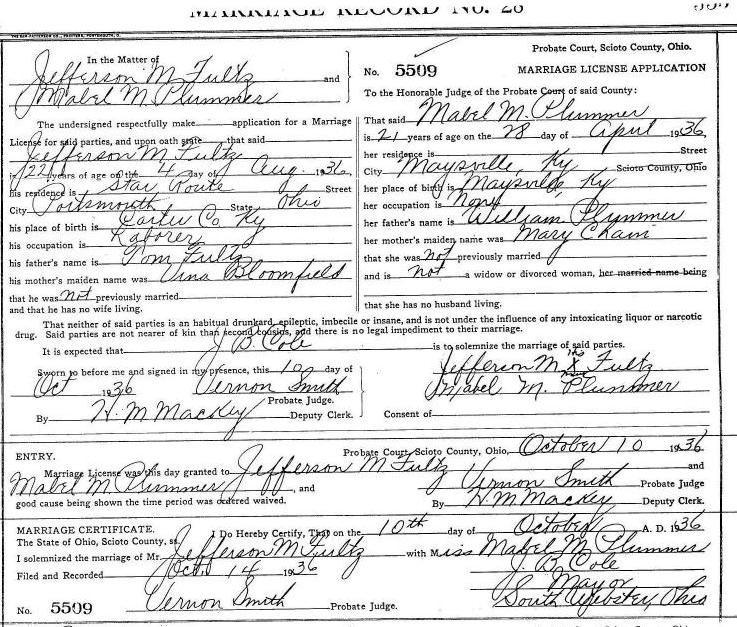 MARRIAGE RECORD NO. 28
In the Matter of
Jefferson M Fultz and
Mabel M. Plummer
The undersigned respectfully make application for a Marriage
License for said parties, and upon oath state that said
Jefferson M Fultz
is 22 years of age on the 4 day of Aug. 1936,
his residence is Star Route Street
City Portsmouth State Ohio
his place of birth is Carter Co. Ky
his occupation is Laborer
his father's name is Tom Fultz
his mother's maiden name was Vina Bloomfield
that he was not previously married
and that he has no wife living.
Probate Court, Scioto County, Ohio.
No. 5509 MARRIAGE LICENSE APPLICATION
To the Honorable Judge of the Probate Court of said County:
That said Mabel M. Plummer
is 21 years of age on the 28 day of April 1936,
her residence is Street
City Maysville, Ky Scioto County, Ohio
her place of birth is Maysville, Ky
her occupation is None
her father's name is William Plummer
her mother's maiden name was Mary Chain
that she was not previously married
and is not a widow or divorced woman, her married name being
that she has no husband living.
That neither of said parties is an habitual drunkard, epileptic, imbecile or insane, and is not under the influence of any intoxicating liquor or narcotic
drug. Said parties are not nearer of kin than second cousins, and there is no legal impediment to their marriage.
It is expected that J B. Cole is to solemnize the marriage of said parties.
Sworn to before me and signed in my presence, this 10 day of
Oct 1936 Vernon Smith
Probate Judge.
By H. M Mackey Deputy Clerk.
Jefferson M his X Fultz
Mabel M. Plummer
Consent of
ENTRY. Probate Court, Scioto County, Ohio, October 10 1936
Marriage License was this day granted to Jefferson M Fultz and
Mabel M. Plummer, and Vernon Smith Probate Judge
good cause being shown the time period was ordered waived. By H. M. Mackey Deputy Clerk.
MARRIAGE CERTIFICATE.
The State of Ohio, Scioto County, ss. I Do Hereby Certify, That on the 10th day of October A. D. 1936
I solemnized the marriage of Mr. Jefferson M Fultz with Miss Mabel M. Plummer
Filed and Recorded Oct. 14 1936 J. B Cole
Mayor
No. 5509 Vernon Smith Probate Judge. South Webster, Ohio